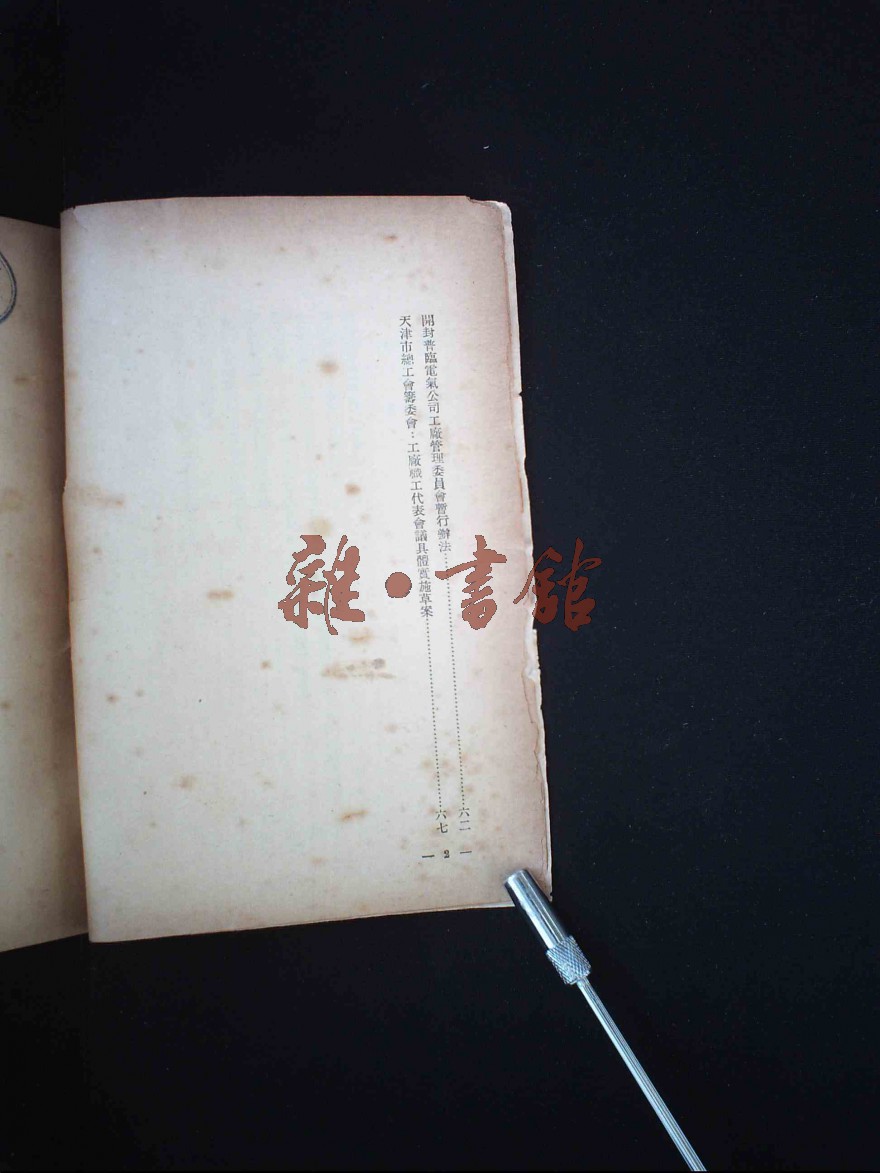 開封普臨電氣公司工廠管理委員會暫行辦法……………………六二
天津市總工會籌委會：工廠職工代表會議具體實施草案……………………六七
— 2 —
雜·書館